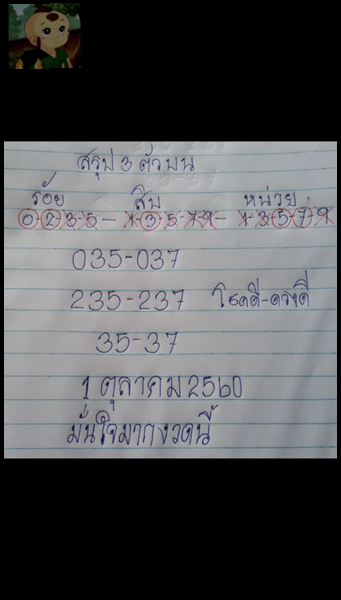 สรุป 3 ตัวบน
ร้อย สิบ หน่วย
0-2-3-5- 1-3-5-7-9- 1-3-5-7-9
035-037
235-237 โชคดี-ดวงดี
35-37
1 ตุลาคม 2560
มั่นใจมากงวดนี้